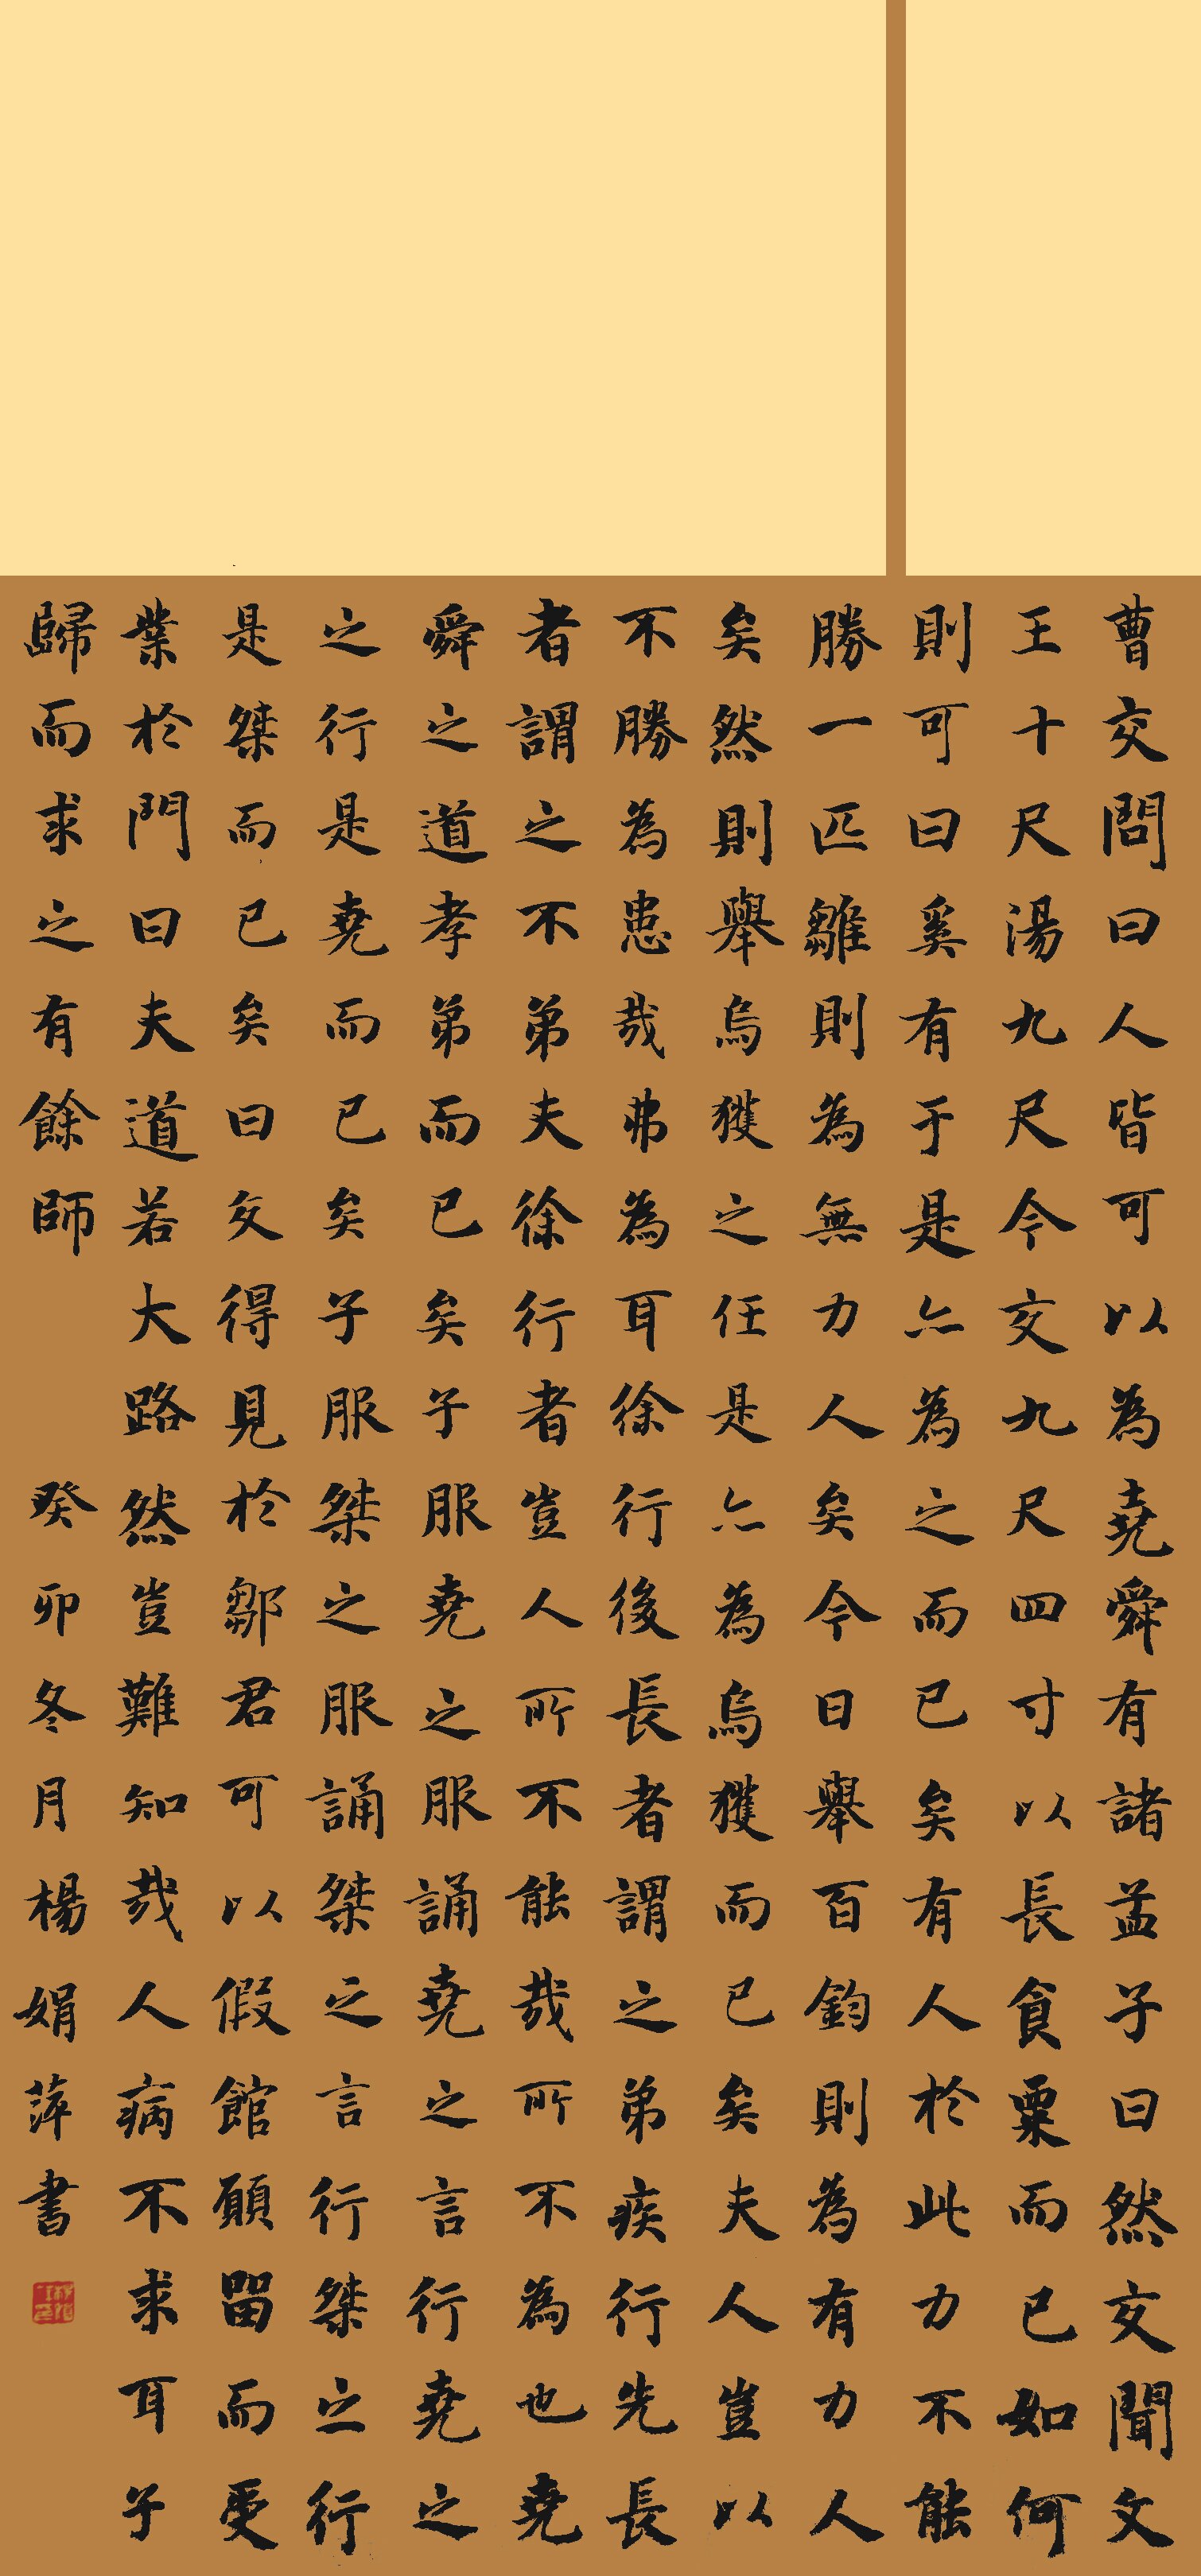 曹交問曰人皆可以為堯舜有諸孟子曰然交聞文
王十尺湯九尺今交九尺四寸以長食粟而已如何
則可曰奚有于是亦為之而已矣有人於此力不能
勝一匹雛則為無力人矣今日舉百鈞則為有力人
矣然則舉烏獲之任是亦為烏獲而已矣夫人豈以
不勝為患哉弗為耳徐行後長者謂之弟疾行先長
者謂之不弟夫徐行者豈人所不能哉所不為也堯
舜之道孝弟而已矣子服堯之服誦堯之言行堯之
之行是堯而已矣子服桀之服誦桀之言行桀之行
是桀而已矣曰交得見於鄒君可以假館願留而受
業於門曰夫道若大路然豈難知哉人病不求耳子
歸而求之有餘師 癸卯冬月楊娟萍書